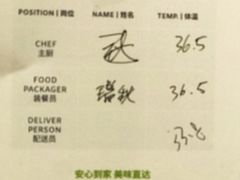 POSITION | 岗位 NAME | 姓名 TEMP. | 体温
CHEF
主厨 36.5
FOOD
PACKAGER
装餐员 36.5
DELIVER
PERSON
配送员
安心到家 美味直达